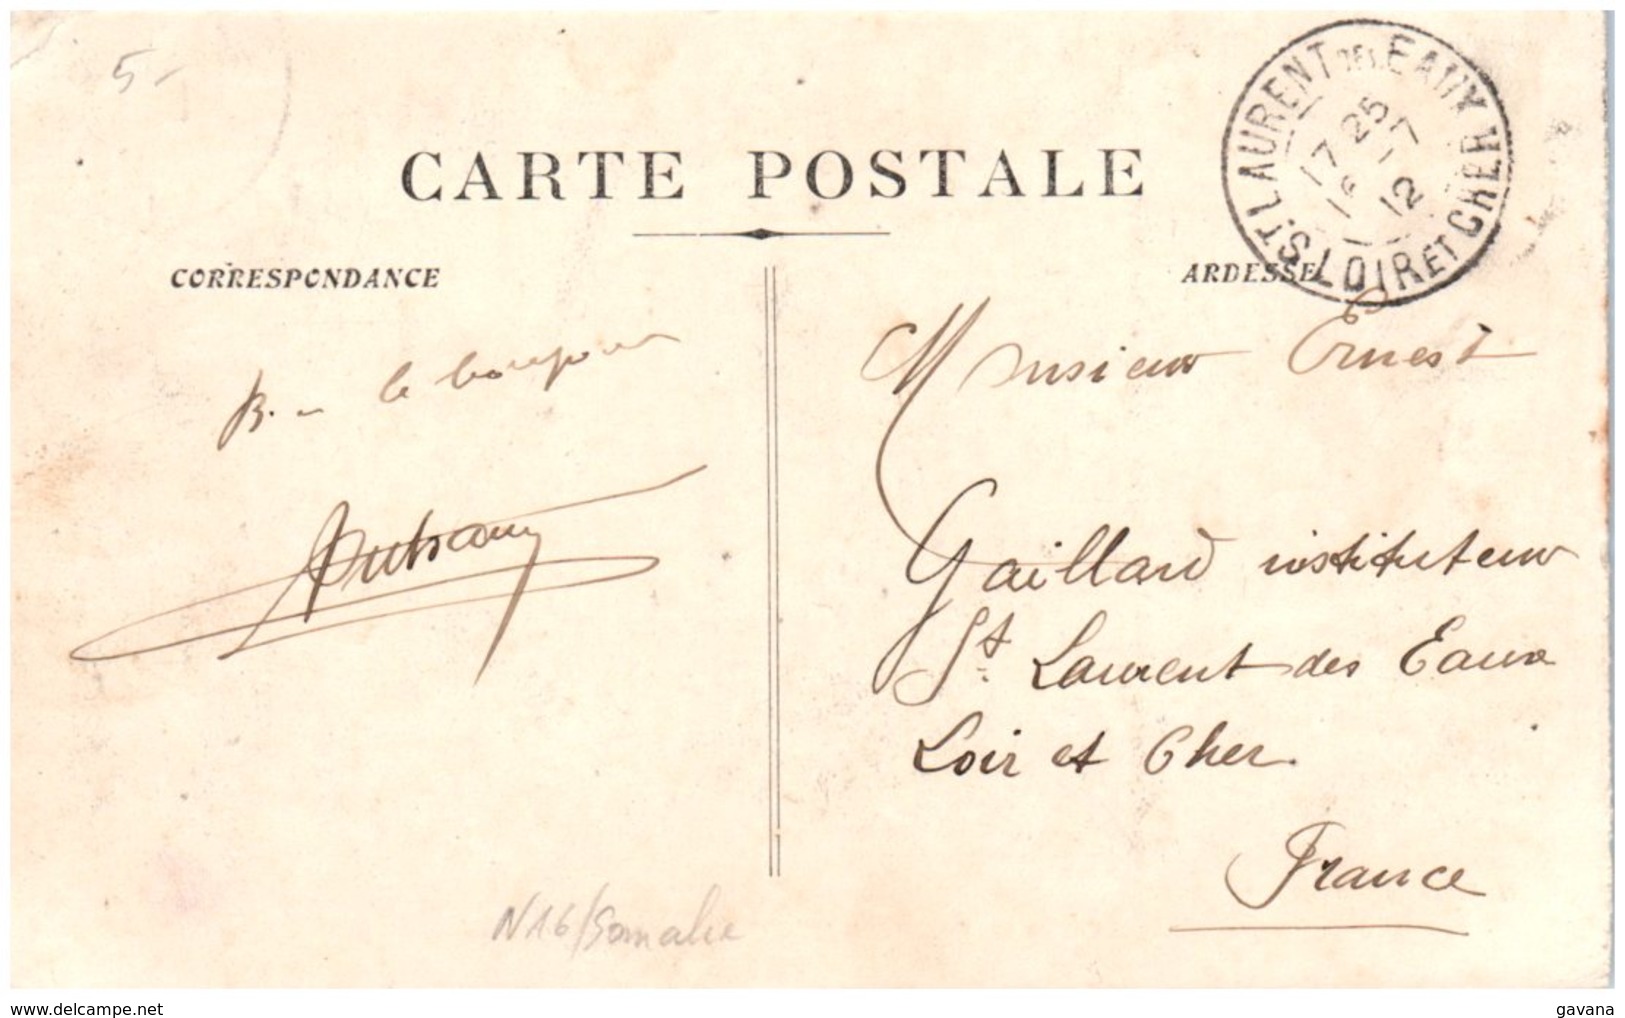 5-
CARTE POSTALE
CORRESPONDANCE
ARDESSE
ST LAURENT DES EAUX
LOIR ET CHER
17 25
16 -7
12
B. le bonjour
Monsieur Ernest
Gaillard instituteur
St. Laurent des Eaux
Loir et Cher.
France
N16/Somalie
www.delcampe.net
gavana